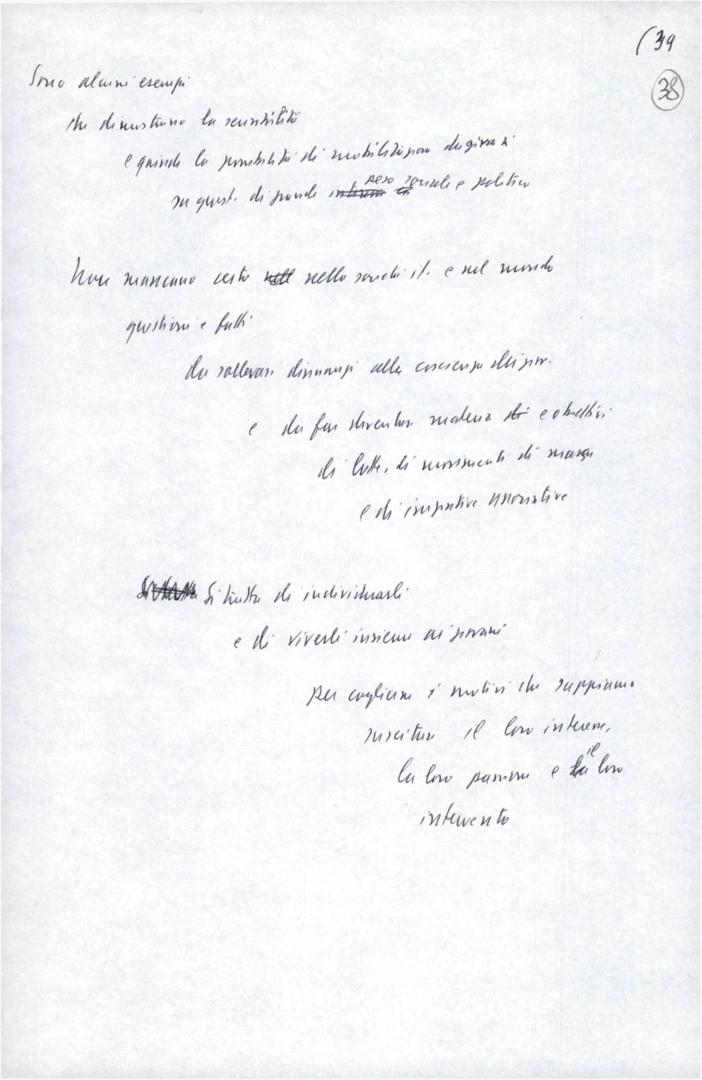 (39
38
Sono alcuni esempi
che dimostrano la sensibilità
e quindi la possibilità di mobilitazione dei giovani
su quest. di grande peso sociale e politico
Non mancano certo nella società it. e nel mondo
questioni e fatti
da sollevare dinnanzi alla coscienza dei giov.
e da far diventare materia e obiettivi
di lotte, di movimenti di massa
e di iniziative associative
Si tratta di individuarli
e di viverli insieme ai giovani
per cogliere i motivi che sappiano
suscitare il loro interesse,
la loro passione e il loro
intervento